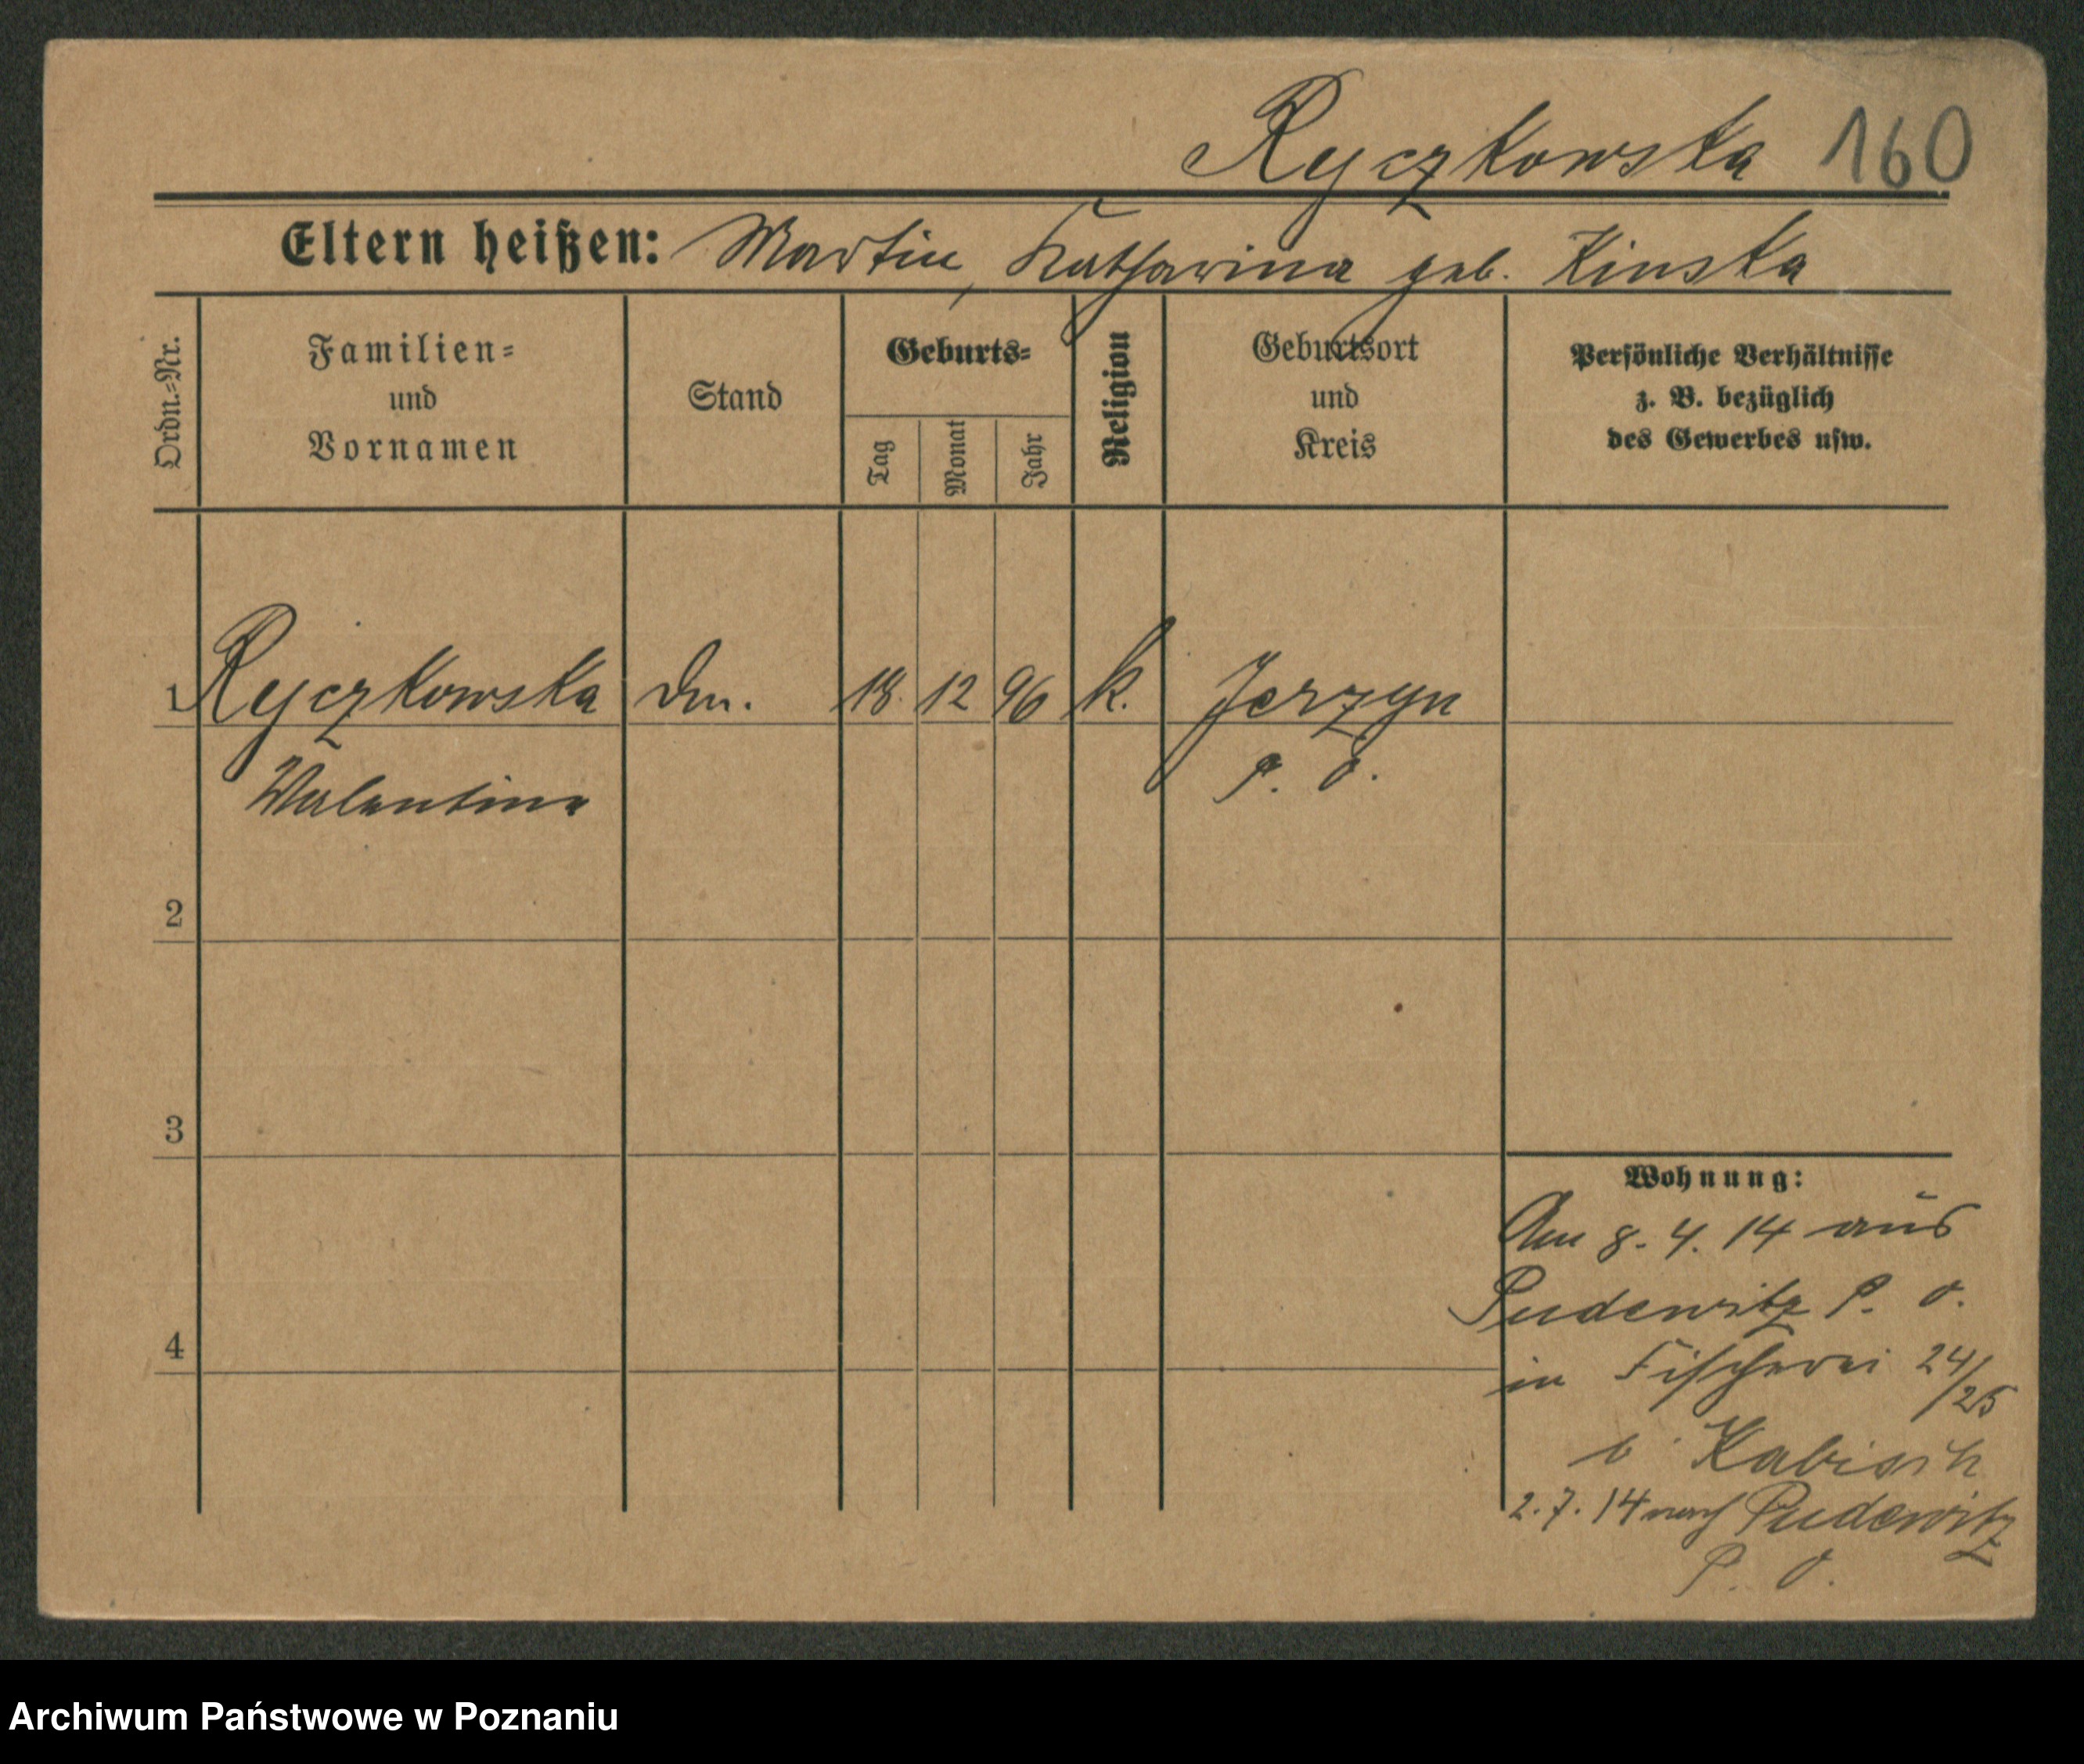 Ryczkowska 160
Eltern heißen: Martin, Katharina geb. Kinska
Ordn.=Nr.
Familien=
und
Vornamen
Stand
Geburts=
Tag
Monat
Jahr
Religion
Geburtsort
und
Kreis
Persönliche Verhältnisse
z. B. bezüglich
des Gewerbes usw.
1 Ryczkowska Dm. 18. 12 96 k. Jerzyn
Valentina P. O.
2
3
4
Wohnung:
Am 8. 4. 14 aus
Pudewitz P. O.
in Fischerei 24/25
b Kabisch
2. 7. 14 nach Pudewitz
P. O.
Archiwum Państwowe w Poznaniu